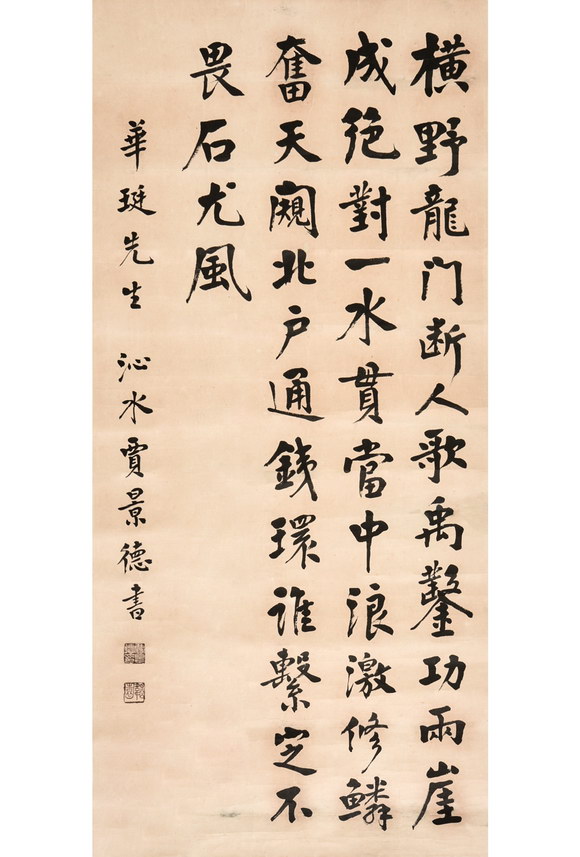 横野龍门断人歌禹鑿功兩崖
成絶對一水貫當中浪激修鱗
奮天闚北户通銕環誰繫定不
畏石尤風
華珽先生 沁水賈景德書